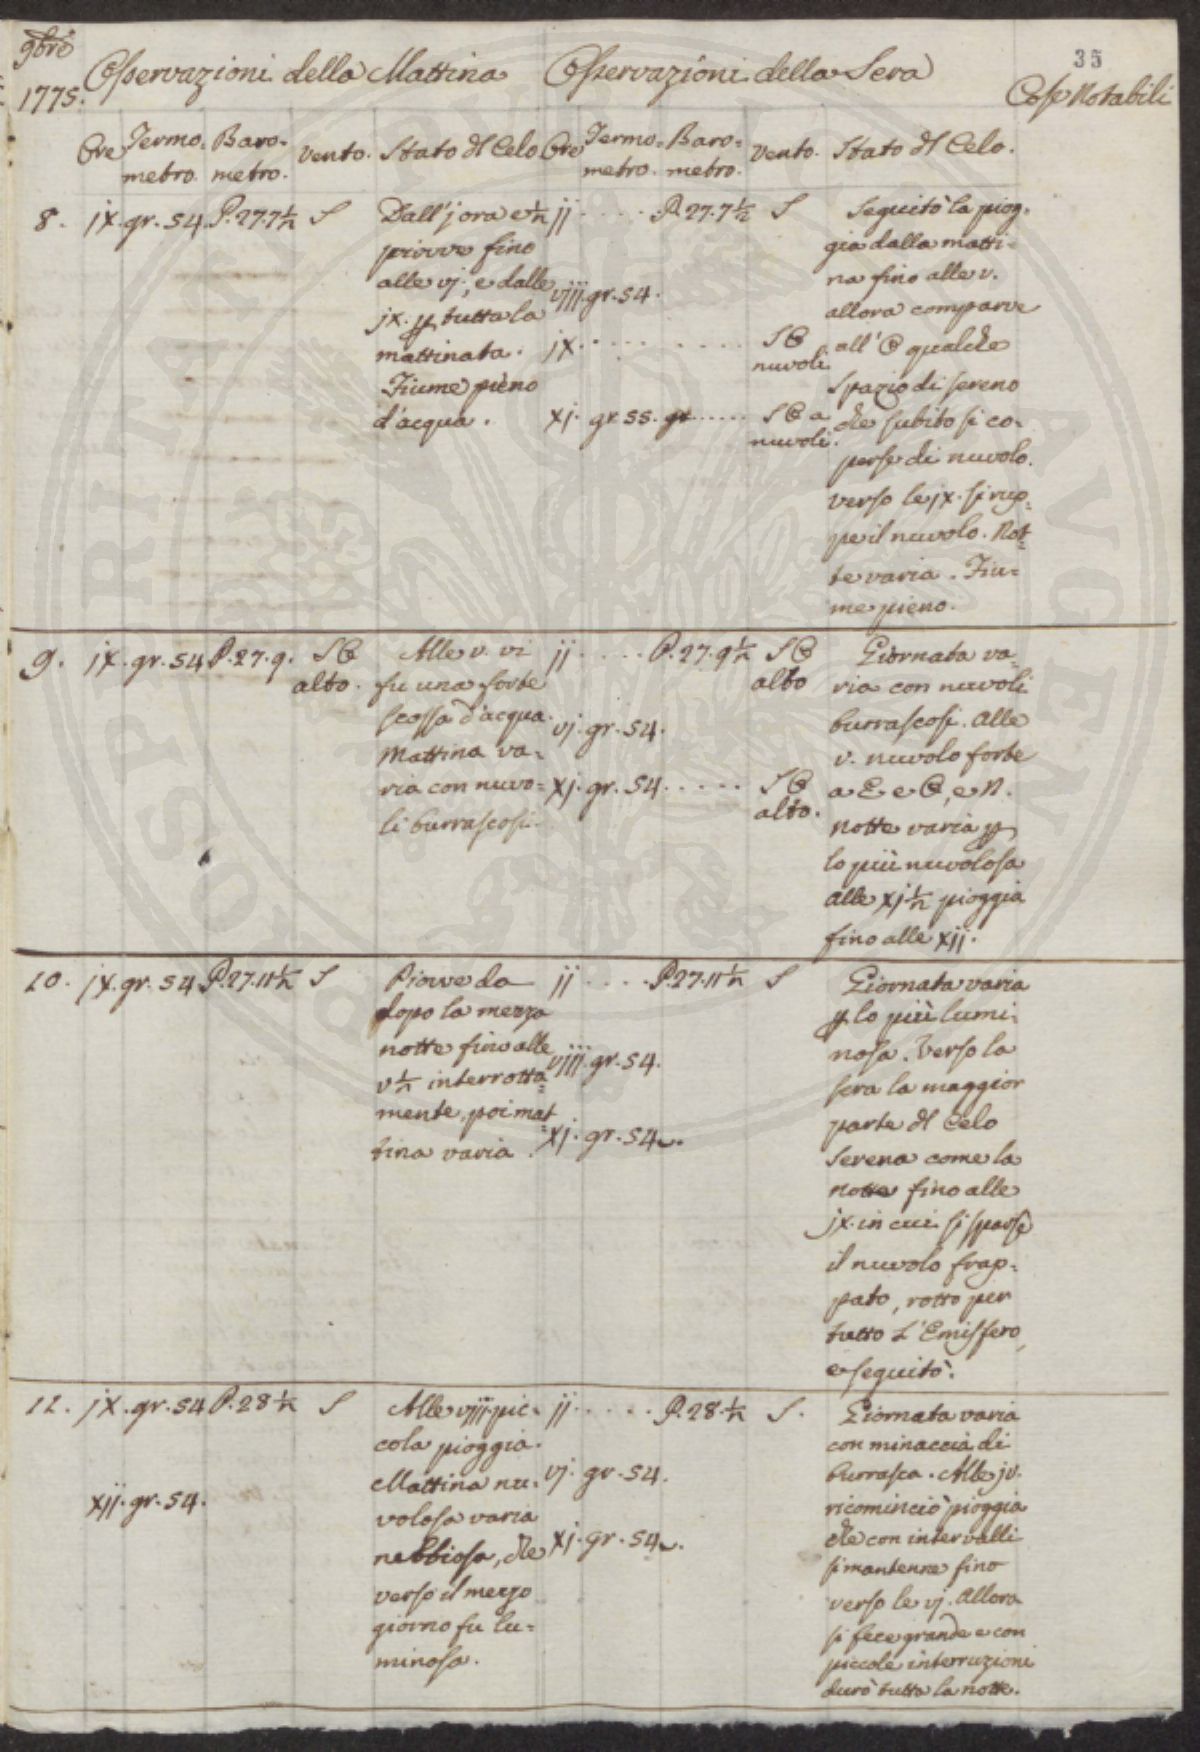 9bre
1775.
35
Osservazioni della Mattina
Osservazioni della Sera
Cose Notabili
Ore
Termo-
metro.
Baro-
metro.
vento.
Stato dl Celo
Ore
Termo-
metro.
Baro-
metro.
vento.
Stato dl Celo.
8.
jx. gr. 54.
P. 27. 7 ½
S
Dall' j ora e ½
piovve fino
alle vj., e dalle
jx. p tutta la
mattinata.
Fiume pieno
d'acqua.
jj . . . . P. 27. 7 ½
S
viij. gr. 54.
jx . . . . . . . . . .
SO
nuvoli.
xj. gr 55. gr . . . . .
SO a
nuvoli.
Seguitò la piog-
gia dalla matti-
na fino alle v.
allora comparve
all' O qualche
spazio di sereno
che subito si co-
perse di nuvolo.
verso le jx. si rup-
pe il nuvolo. Not-
te varia. Fiu-
me pieno.
9.
jx. gr. 54
P. 27. 9.
SO
alto.
Alle v. vi
fu una forte
scossa d'acqua.
Mattina va-
ria con nuvo-
li burrascosi.
jj . . . . P. 27. 9 ½
SO
alto
vj. gr. 54.
xj. gr. 54 . . . . .
SO
alto.
Giornata va-
ria con nuvoli
burrascosi. alle
v. nuvolo forte
a E e O, e N.
notte varia p
lo più nuvolosa
alle xj ½ pioggia
fino alle xij.
10.
jx. gr. 54
P. 27. 11 ½
S
Piovve da
dopo la mezza
notte fino alle
v ½ interrotta-
mente, poi mat-
tina varia.
jj . . . . P. 27. 11 ½
S
viij. gr. 54.
xj. gr. 54.
Giornata varia
p lo più lumi-
nosa. Verso la
sera la maggior
parte dl Celo
serena come la
notte fino alle
jx. in cui si sparse
il nuvolo frap-
pato, rotto per
tutto l'Emisfero,
e seguitò.
11.
jx. gr. 54
P. 28 ½
S
xij. gr. 54.
Alle viij. pic-
cola pioggia.
Mattina nu-
volosa varia
nebbiosa, che
verso il mezzo
giorno fu lu-
minosa.
jj . . . . . P. 28. ½
S.
vj. gr. 54.
xj. gr. 54.
Giornata varia
con minaccia di
burrasca. Alle jv.
ricominciò pioggia
che con intervalli
si mantenne fino
verso le vj. Allora
si fece grande e con
piccole interruzioni
durò tutta la notte.